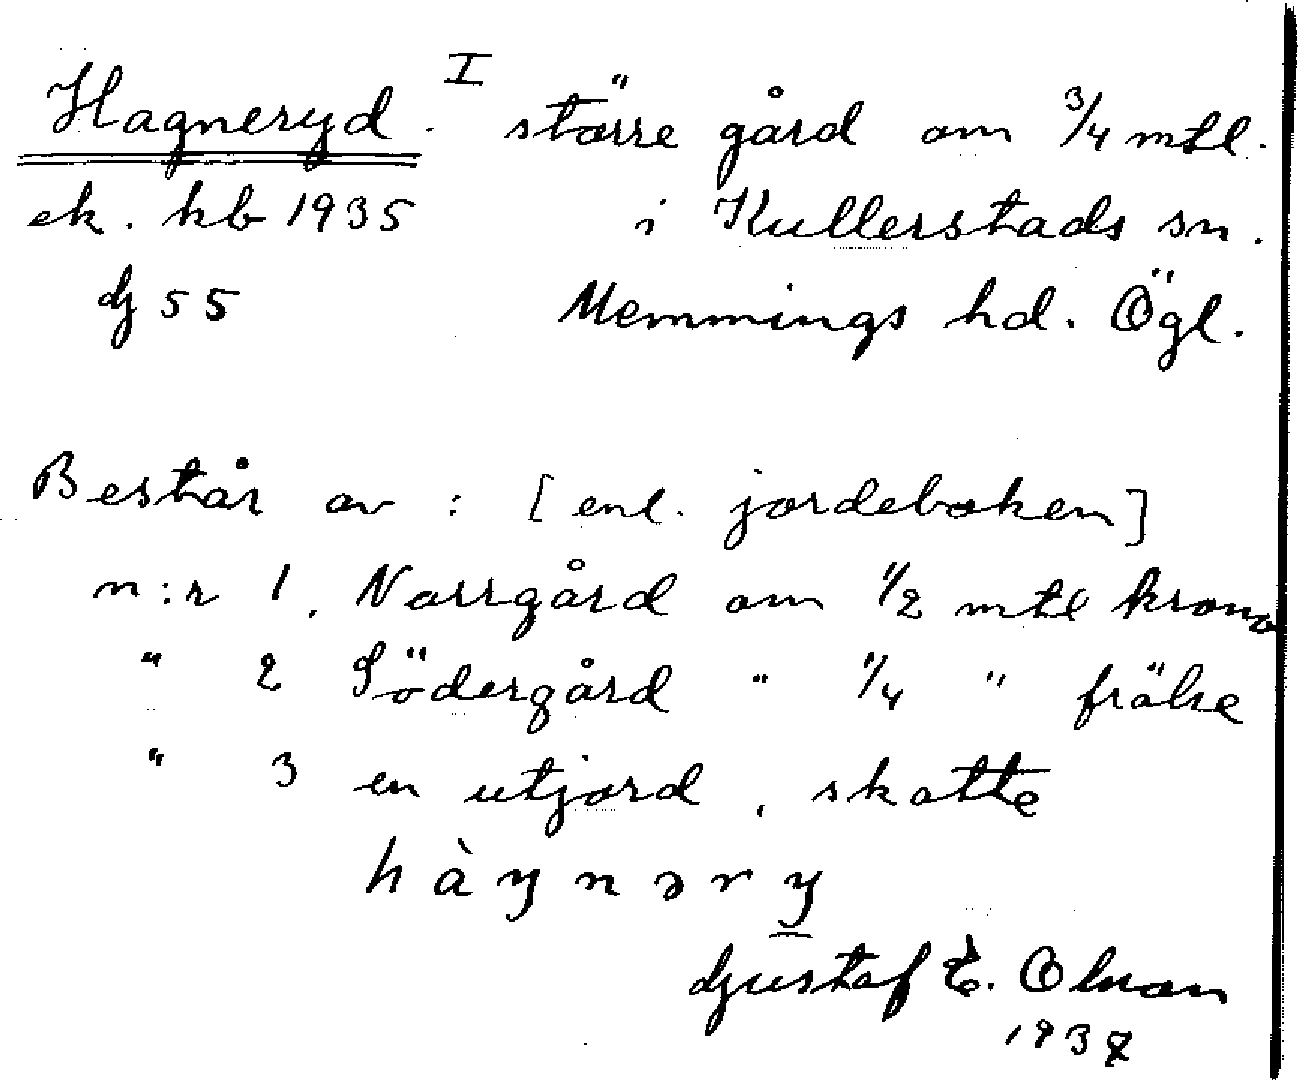 Hagneryd. I större gård om 3/4 mtl.
ek. kb 1935 i Kullerstads sn.
Gj 55 Memmings hd. Ögl.
Består av : [enl. jordeboken]
n:r 1. Norrgård om 1/2 mtl krono
" 2 Södergård " 1/4 " frälse
" 3 en utjord, skatte
hàŋnəry
Gustaf E. Olsson